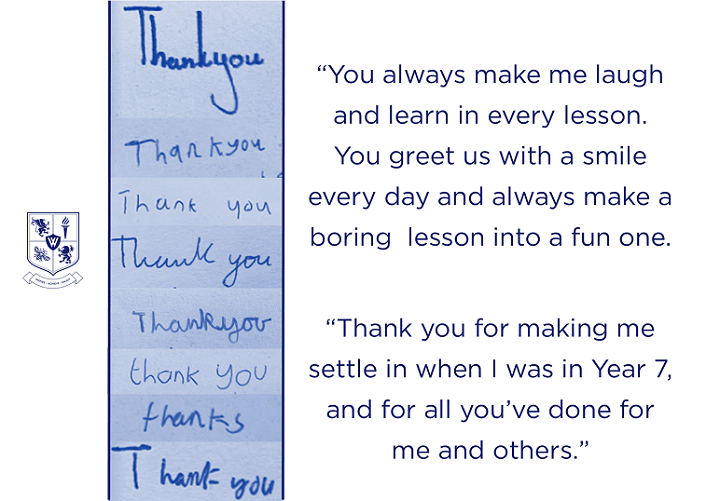 Thankyou
Thankyou
Thank you
Thank you
Thankyou
thank you
thanks
Thank you
“You always make me laugh
and learn in every lesson.
You greet us with a smile
every day and always make a
boring lesson into a fun one.
“Thank you for making me
settle in when I was in Year 7,
and for all you’ve done for
me and others.”
W